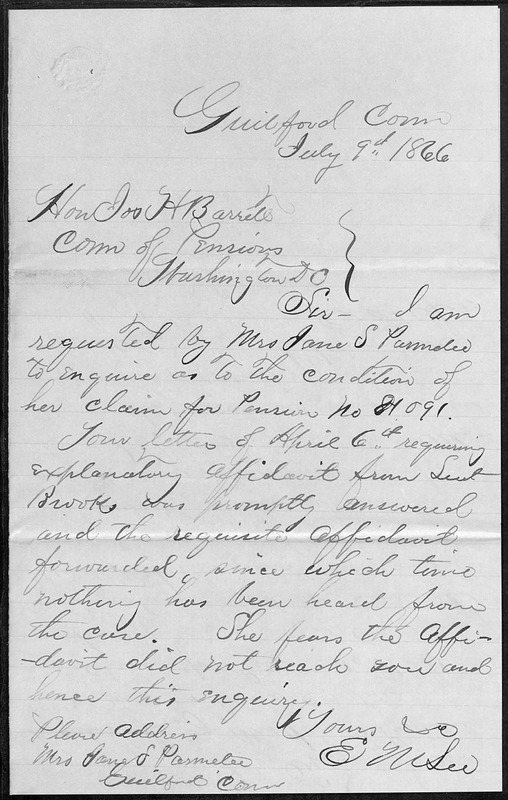 Guilford Conn
July 9th 1866
Hon Jos H Barrett
Com of Pensions
Washington DC
Sir - I am
requested by Mrs Jane S Parmelee
to enquire as to the condition of
her claim for Pension No 091.
Your letter of April 6th requiring
explanatory affidavit from Lieut
Brooks was promptly answered
and the requisite affidavit
forwarded, since which time
nothing has been heard from
the case. She fears the Affi-
-davit did not reach you and
hence this enquiry.
Yours &c
E M Lee
Please address
Mrs Jane S Parmelee
Guilford Conn